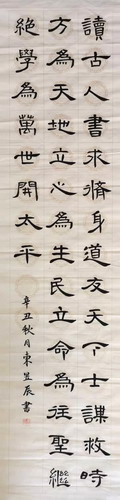 讀古人書求脩身道友天下士謀救時
方為天地立心為生民立命為往聖繼
絕學為萬世開太平
辛丑秋月東昱辰書